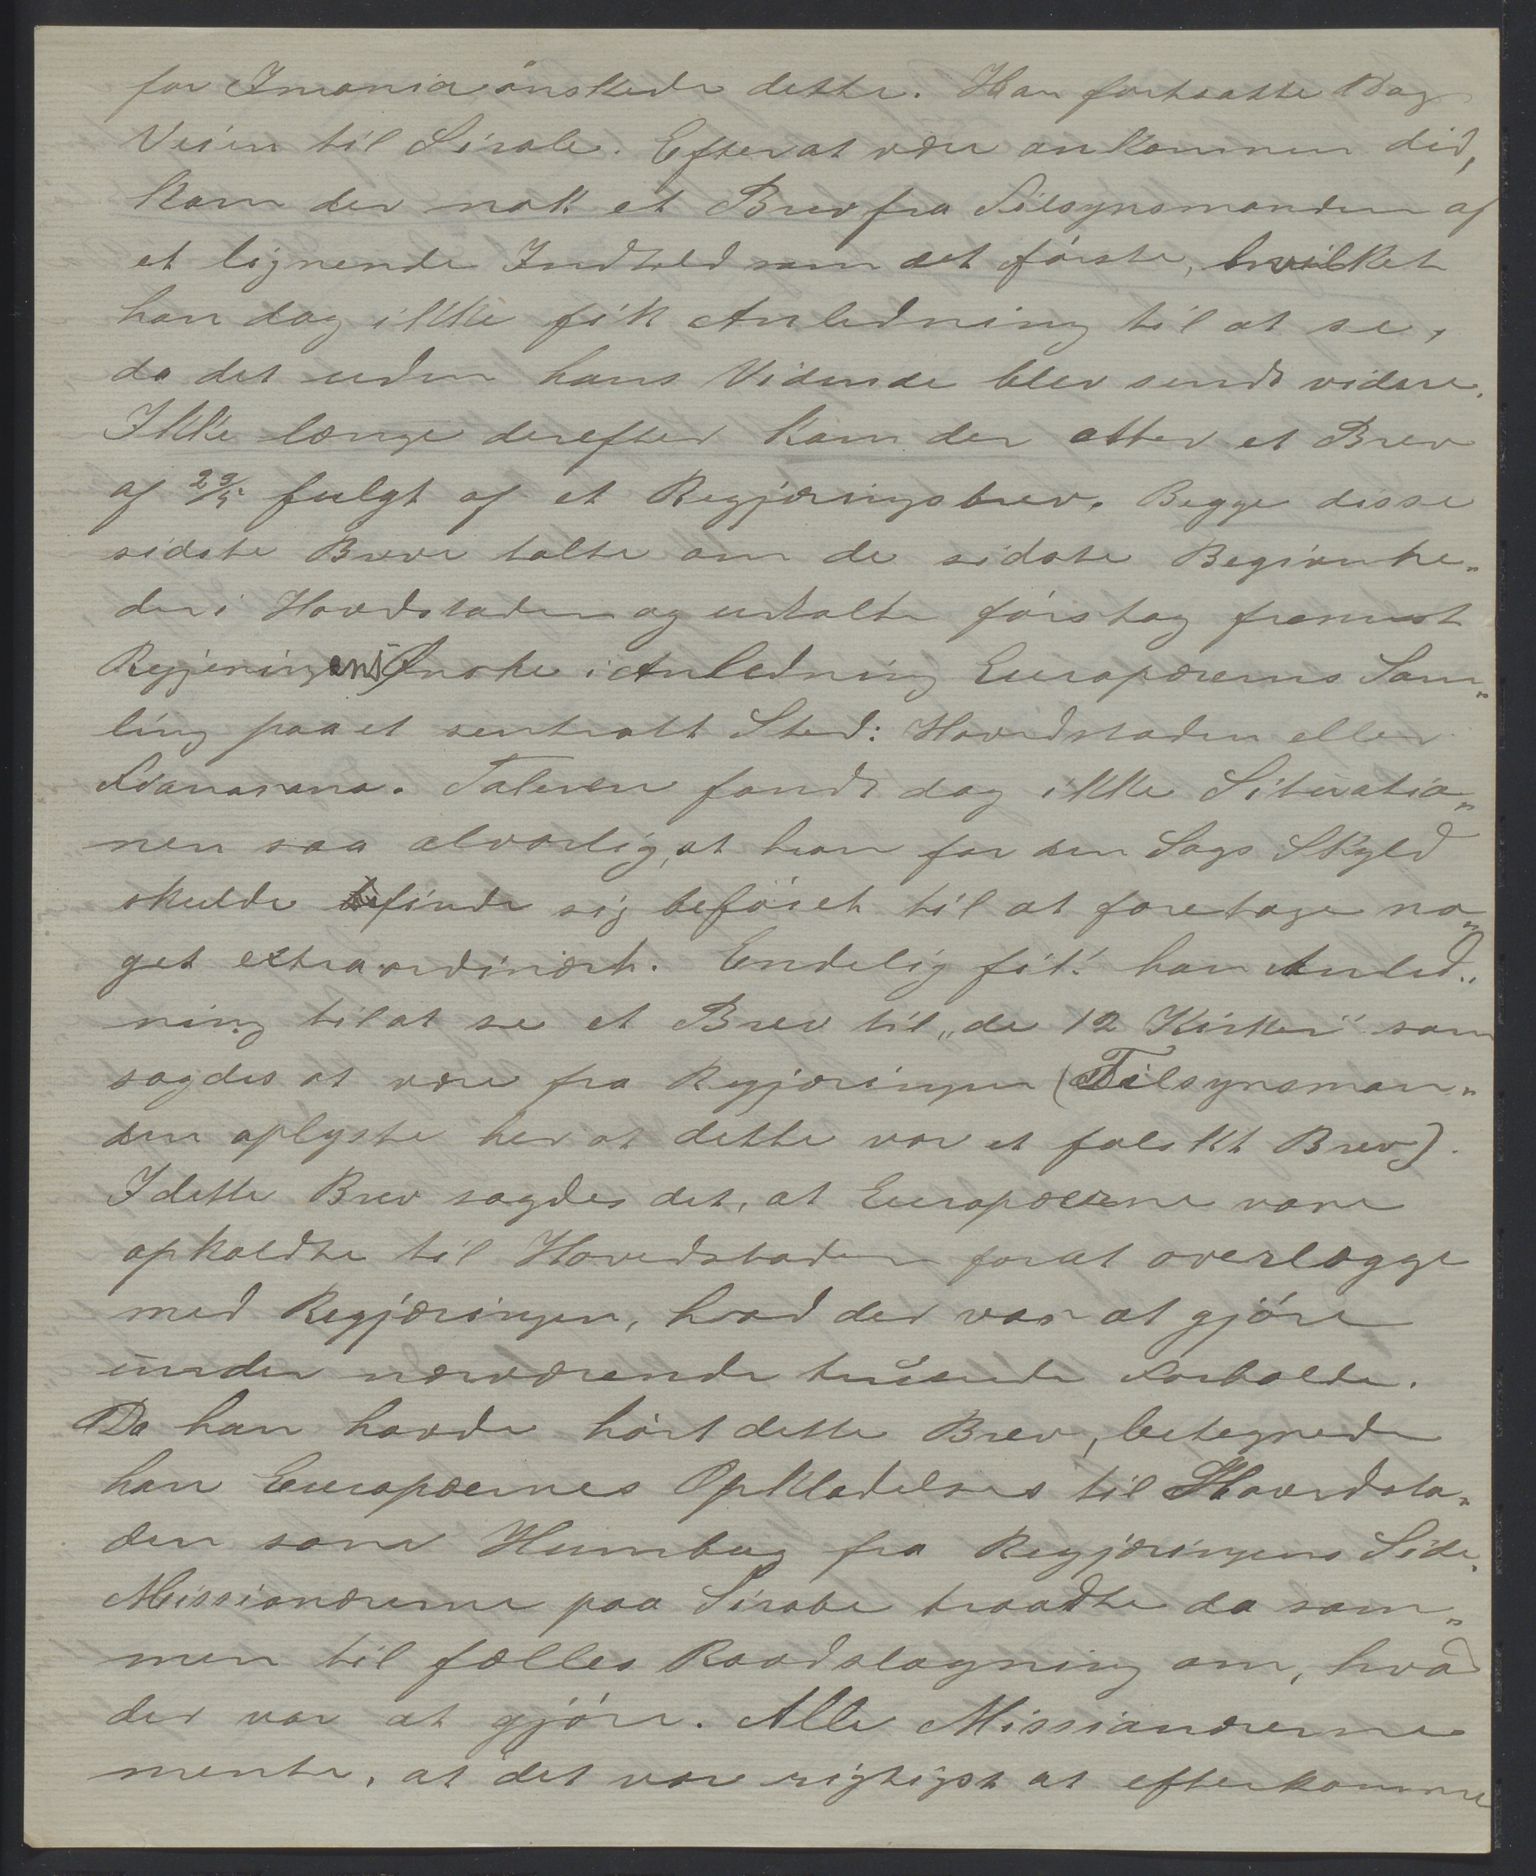 for Imania ønskede dette. Han fortsatte dog
Veien til Sirabe. Efter at være ankommen did,
kom der nok et Brev fra Tilsynsmanden af
et lignende Indhold som det første, hvilket
han dog ikke fik Anledning til at se,
da det uden hans Vidende blev sendt videre.
Ikke længe derefter kom der atter et Brev
af fulgt af et Regjæringsbrev. Begge disse
sidste Breve talte om de sidste Begivenhe„
der i Hovedstaden og udtalte først og fremst
Regjeringens Ønske i Anledning Europæernes Sam„
ling paa et sentralt Sted: Hovedstaden eller
Fianarana. Taleren fandt dog ikke Situatio„
nen saa alvorlig, at han for den Sags Skyld
skulde befinde sig beføiet til at foretage no„
get extraordinært. Endelig fik han Anled„
ning til at se et Brev til „de 12 Kirker" som
sagdes at være fra Regjæringen (Tilsynsman„
den oplyste her at dette var et falskt Brev).
I dette Brev sagdes det, at Europæerne vare
opkaldte til Hovedstaden forat overlægge
med Regjæringen, hvad der var at gjøre
under nærværende truende Forholde.
Da han havde hørt dette Brev, betegnede
han Europæernes Opkladelses til Hovedsta„
den som Humbug fra Regjæringens Side.
Missionærerne paa Sirabe traadte da sam„
men til fælles Raadslagning om, hvad
der var at gjøre. Alle Missionærerne
mente, at det var rigtigst at efterkomme